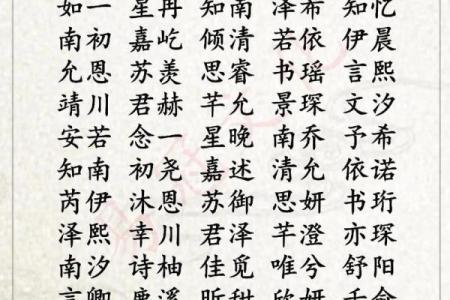 如一 星冉 知南 泽布 知忆
南初 嘉屹 倾清 若依 伊晨
允恩 苏羡 思睿 书瑶 言熙
靖川 君赫 芊允 景琛 文汐
安若 念一 星晚 南乔 予希
知南 初尧 嘉述 清允 依诺
芮伊 沐恩 苏御 思妍 书珩
泽熙 幸川 君泽 芊澄 亦琛
南汐 诗柚 佳觅 唯兮 舒阳